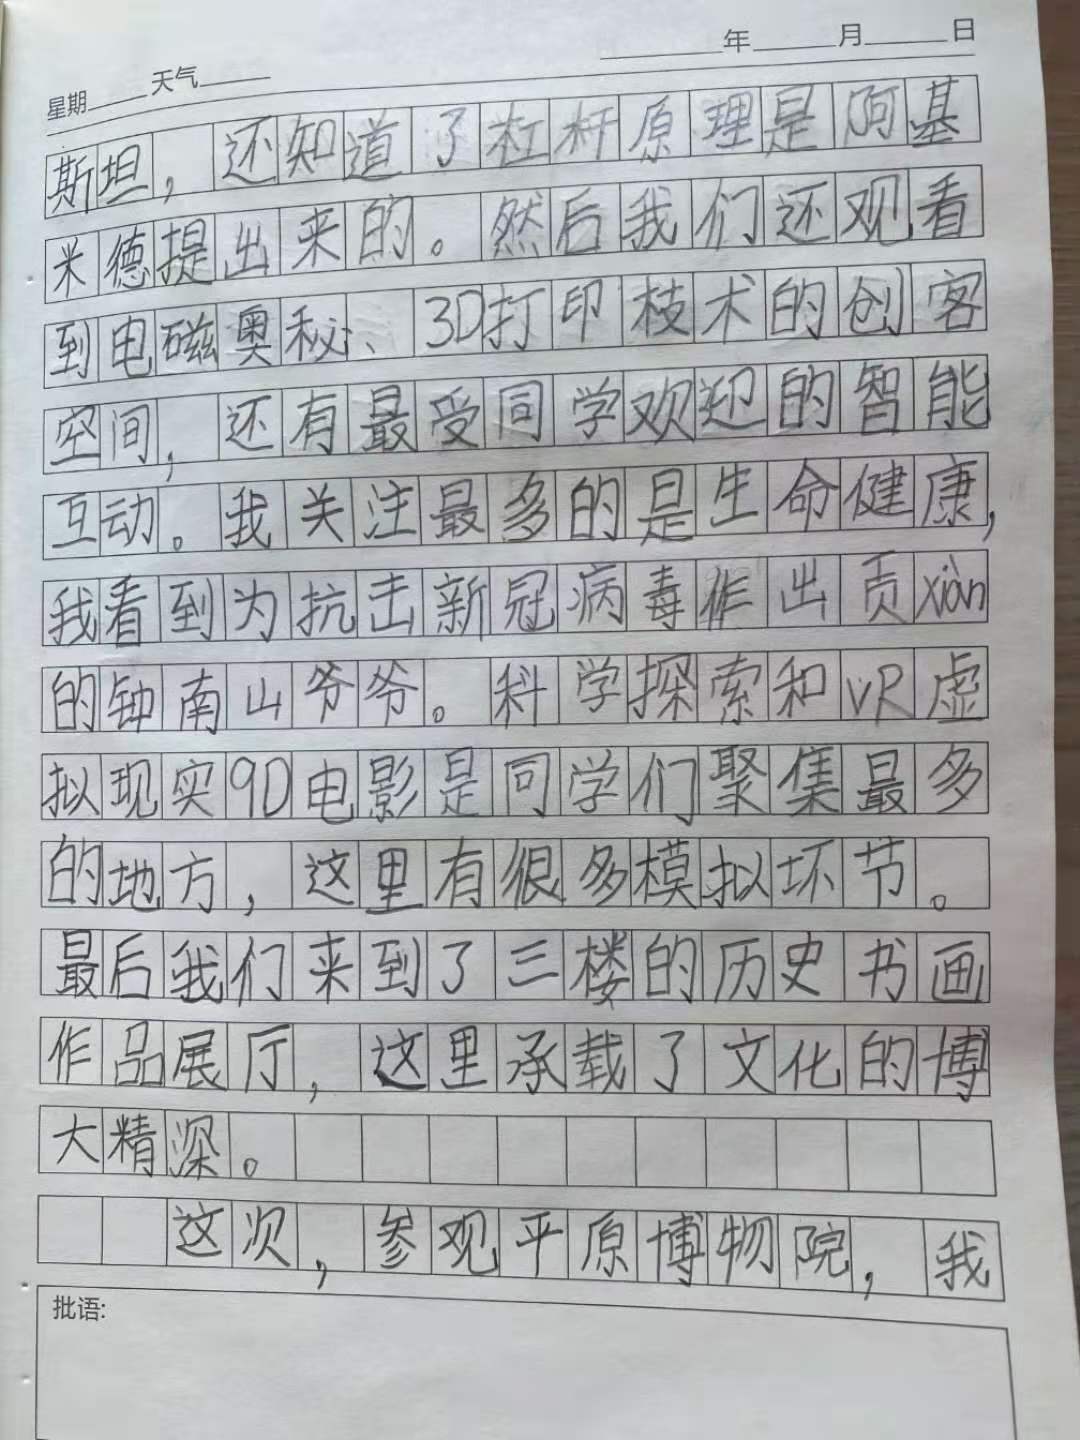 年 月 日
星期 天气
斯坦，还知道了杠杆原理是阿基
米德提出来的。然后我们还观看
到电磁奥秘、3D打印技术的创客
空间，还有最受同学欢迎的智能
互动。我关注最多的是生命健康，
我看到为抗击新冠病毒作出贡xiàn
的钟南山爷爷。科学探索和VR虚
拟现实9D电影是同学们聚集最多
的地方，这里有很多模拟环节。
最后我们来到了三楼的历史书画
作品展厅，这里承载了文化的博
大精深。
这次，参观平原博物院，我
批语: